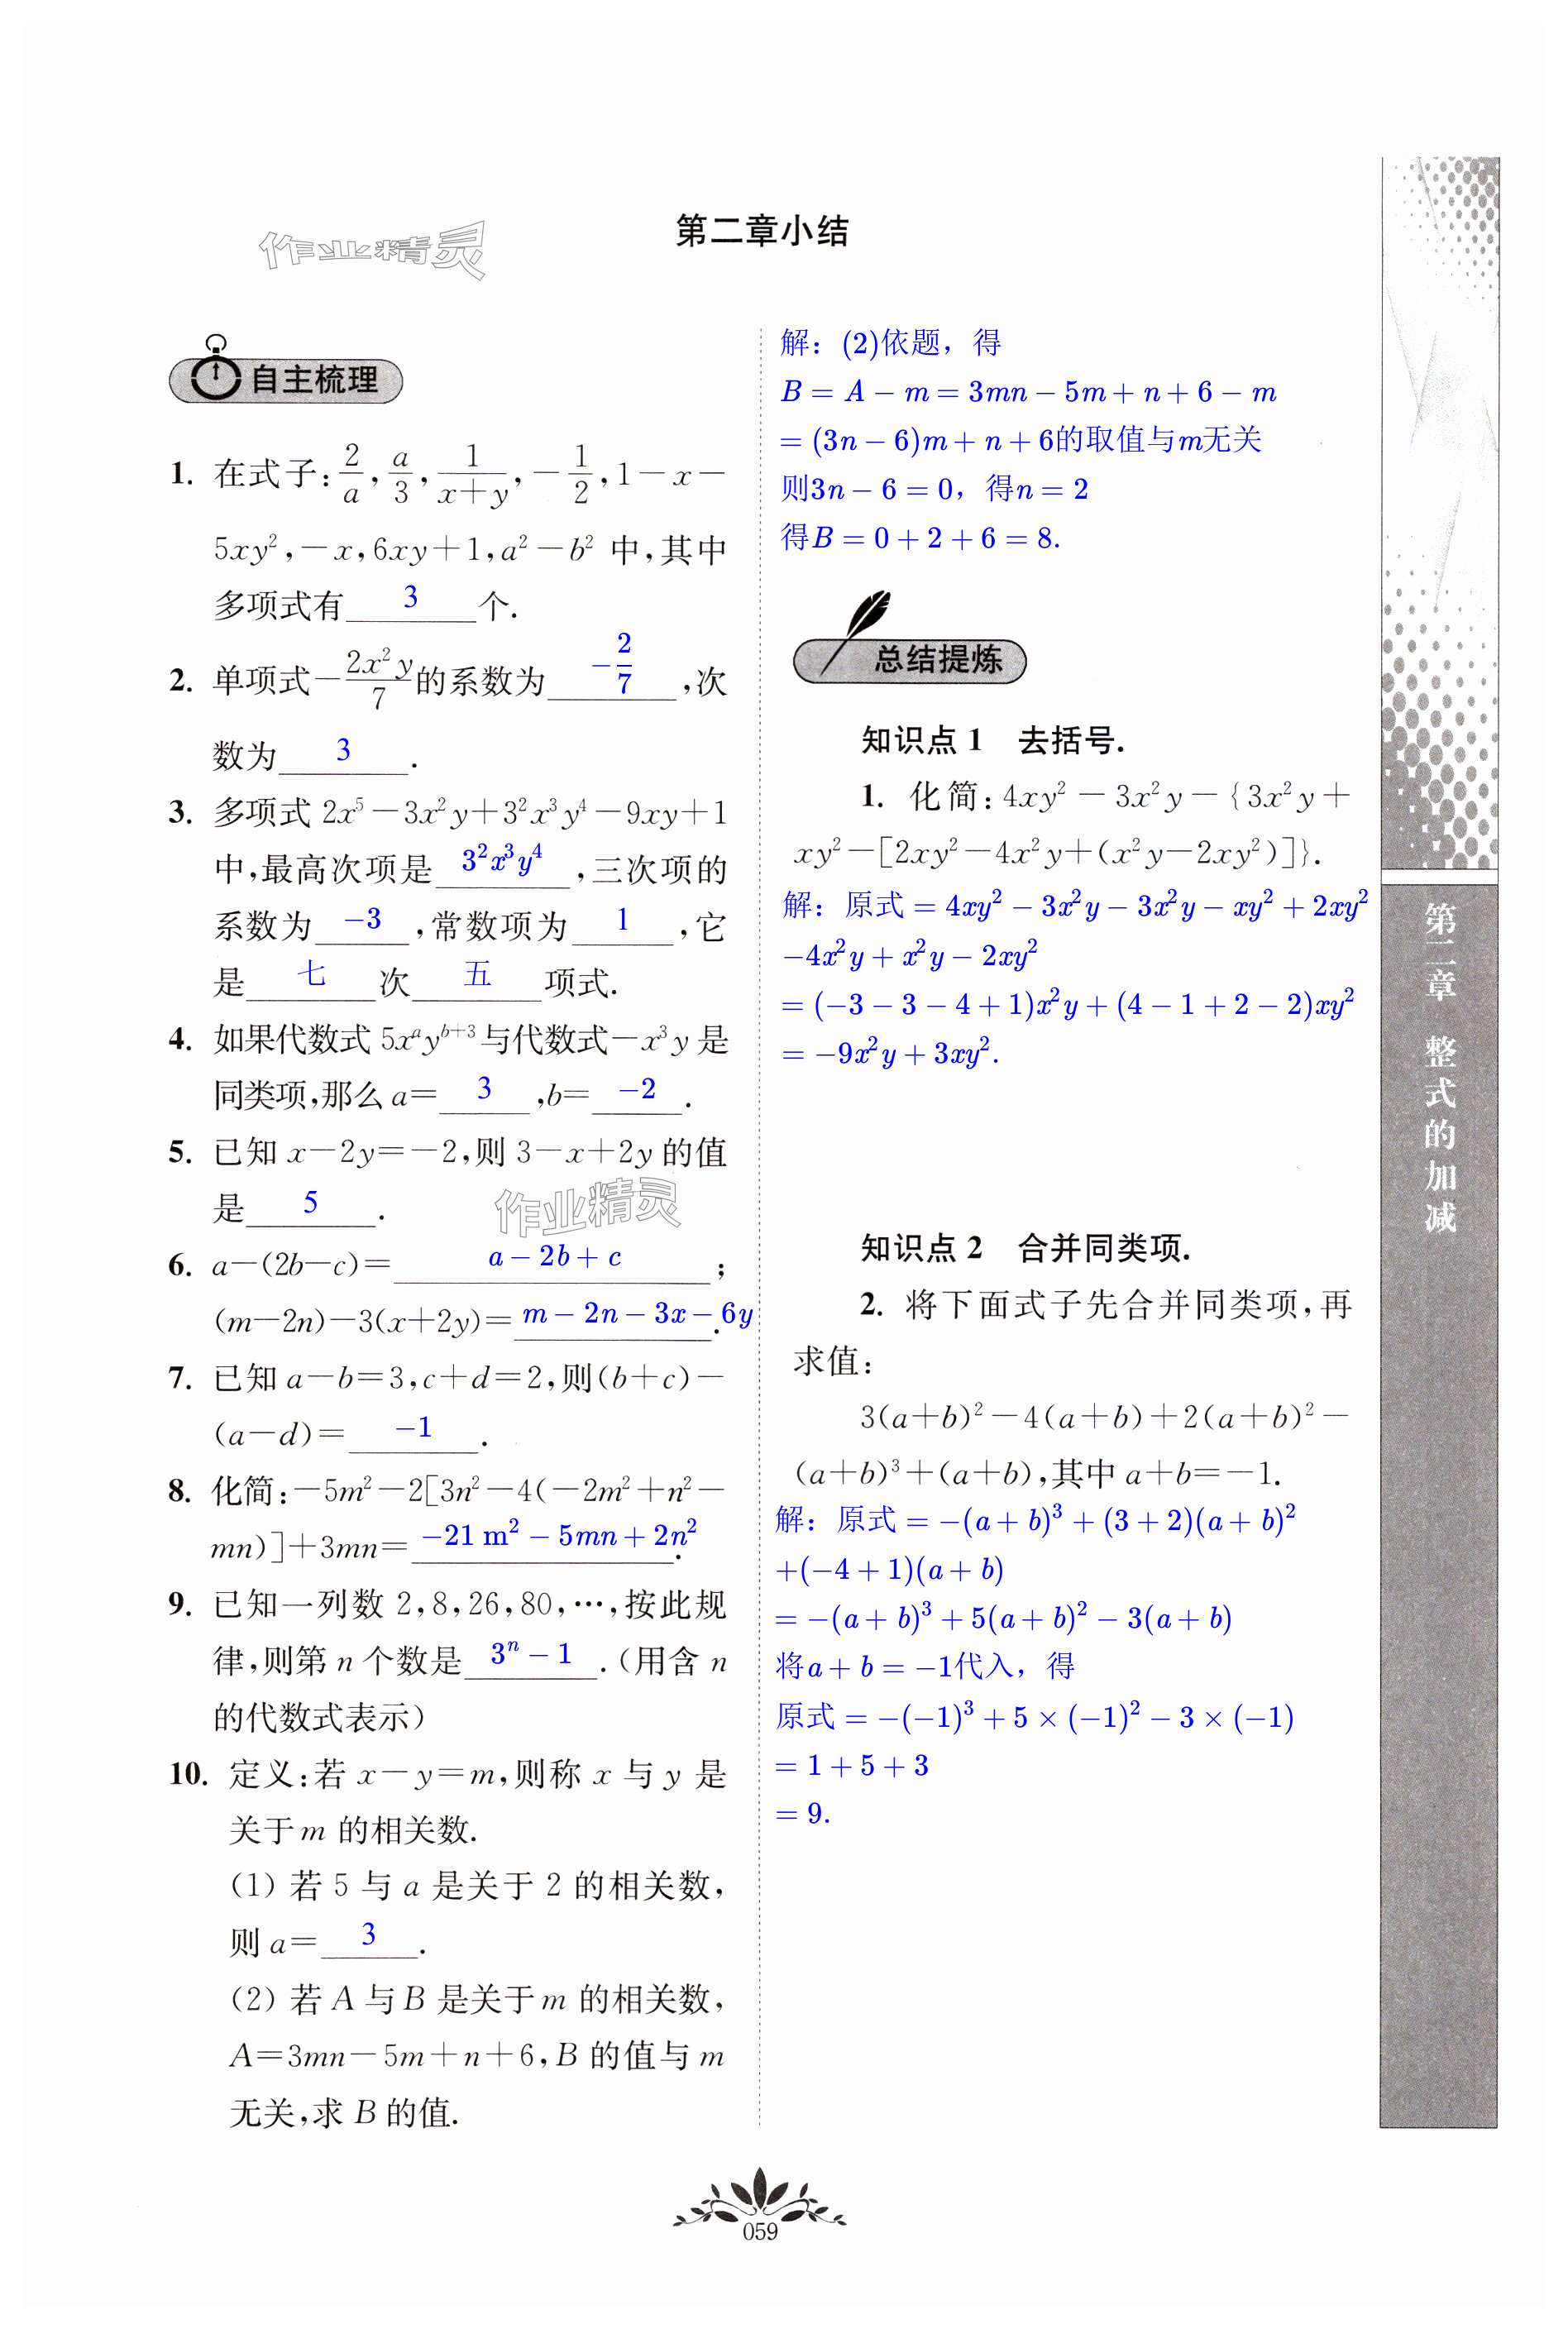 第二章小结
作业精灵
自主梳理
1. 在式子:2/a,a/3,1/(x+y),-1/2,1-x-
5xy²,-x,6xy+1,a²-b² 中,其中
多项式有 3 个.
2. 单项式-2x²y/7的系数为 -2/7 ,次
数为 3 .
3. 多项式 2x⁵-3x²y+3²x³y⁴-9xy+1
中,最高次项是 3²x³y⁴ ,三次项的
系数为 -3 ,常数项为 1 ,它
是 七 次 五 项式.
4. 如果代数式 5xᵃyᵇ⁺³与代数式-x³y 是
同类项,那么 a= 3 ,b= -2 .
5. 已知 x-2y=-2,则 3-x+2y 的值
是 5 .
作业精灵
6. a-(2b-c)= a-2b+c ;
(m-2n)-3(x+2y)= m-2n-3x-6y .
7. 已知 a-b=3,c+d=2,则(b+c)-
(a-d)= -1 .
8. 化简:-5m²-2[3n²-4(-2m²+n²-
mn)]+3mn= -21 m²-5mn+2n² .
9. 已知一列数 2,8,26,80,…,按此规
律,则第 n 个数是 3ⁿ-1 .(用含 n
的代数式表示)
10. 定义:若 x-y=m,则称 x 与 y 是
关于 m 的相关数.
(1) 若 5 与 a 是关于 2 的相关数,
则 a= 3 .
(2) 若 A 与 B 是关于 m 的相关数,
A=3mn-5m+n+6,B 的值与 m
无关,求 B 的值.
解：(2)依题，得
B=A-m=3mn-5m+n+6-m
=(3n-6)m+n+6的取值与m无关
则3n-6=0，得n=2
得B=0+2+6=8.
总结提炼
知识点 1 去括号.
1. 化简:4xy²-3x²y-{3x²y+
xy²-[2xy²-4x²y+(x²y-2xy²)]}.
解：原式=4xy²-3x²y-3x²y-xy²+2xy²
-4x²y+x²y-2xy²
=(-3-3-4+1)x²y+(4-1+2-2)xy²
=-9x²y+3xy².
知识点 2 合并同类项.
2. 将下面式子先合并同类项,再
求值:
3(a+b)²-4(a+b)+2(a+b)²-
(a+b)³+(a+b),其中 a+b=-1.
解：原式=-(a+b)³+(3+2)(a+b)²
+(-4+1)(a+b)
=-(a+b)³+5(a+b)²-3(a+b)
将a+b=-1代入，得
原式=-(-1)³+5×(-1)²-3×(-1)
=1+5+3
=9.
第二章 整式的加减
059